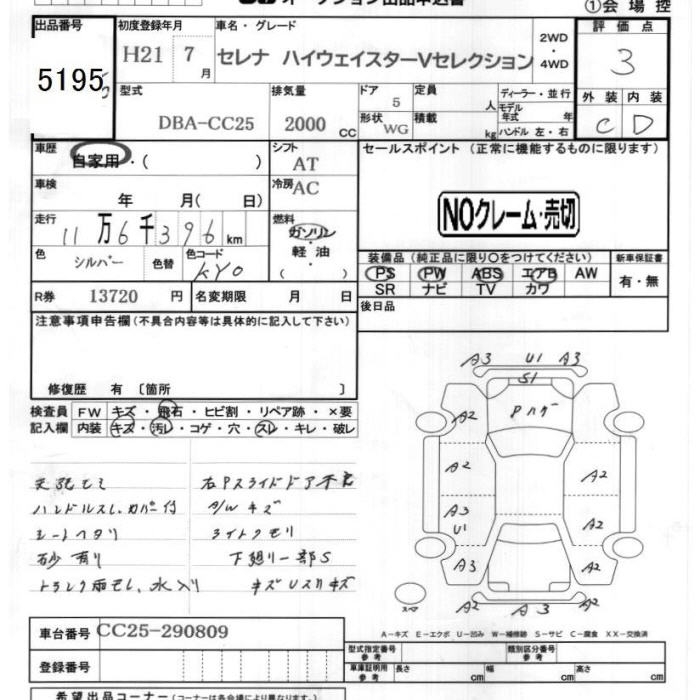 オークション出品申込書 ①会場控
出品番号 初度登録年月 車名・グレード 評価点
5195 H21 7月 セレナ ハイウェイスターVセレクション 2WD・4WD 3
型式 排気量 ドア 定員 ディーラー・並行 外装 内装
DBA-CC25 2000 CC 5 人 モデル年式 年 C D
形状 WG 積載 kg ハンドル 左・右
車歴 自家用・( ) シフト AT セールスポイント (正常に機能するものに限ります)
車検 年 月( 日) 冷房 AC
NOクレーム・売切
走行 11万6千396km 燃料 ガソリン・軽油・( )
色 シルバー 色替 色コード KY0
装備品 (純正品に限り○をつけてください) 新車保証書
PS PW ABS エアB AW 有・無
SR ナビ TV カワ
R券 13720 円 名変期限 月 日 後日品
注意事項申告欄 (不具合内容等は具体的に記入して下さい)
修復歴 有 〔箇所 〕
検査員 FW キズ・飛石・ヒビ割・リペア跡・×要
記入欄 内装 キズ・汚レ・コゲ・穴・スレ・キレ・破レ
右Pスライドドア不良
ハンドルスレ.カバー付 A/Wキズ
シートヘタリ ライトクモリ
石砂有リ 下廻リ一部S
トランク雨モレ、水入り キズUスリキズ
A3 U1 A3
S1
A2 Pハゲ A2
A2 A2
A3 A2
U1
A3 A2
スペア A2 A3 A2
A-キズ E-エクボ U-凹み W-補修跡 S-サビ C-腐食 XX-交換済
車台番号 CC25-290809
型式指定番号 参考 類別区分番号 参考
登録番号 車庫証明用 参考 長さ cm 幅 cm 高さ cm
希望出品コーナー (コーナーは各会場により異なります。)